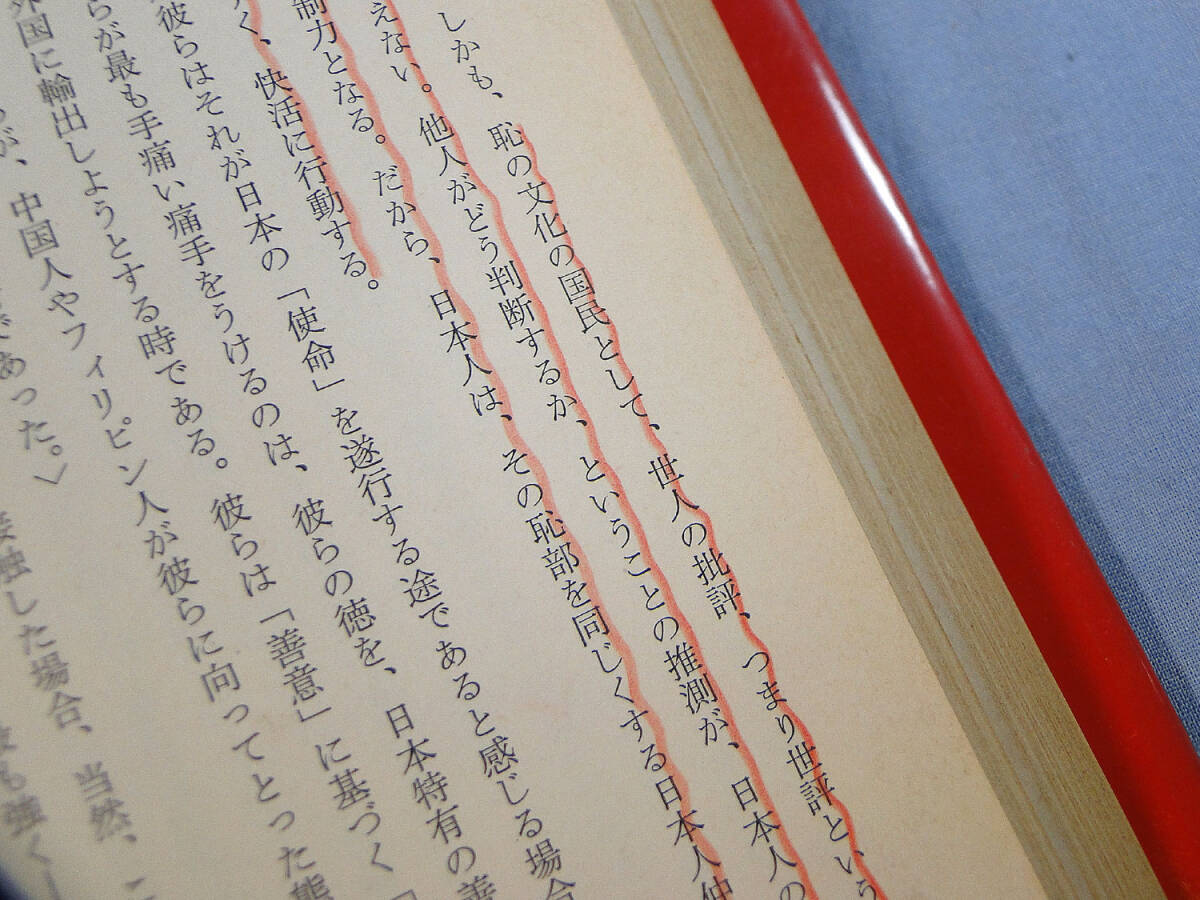 しかも、恥の文化の国民として、世人の批評、つまり世評という
えない。他人がどう判断するか、ということの推測が、日本人の
制力となる。だから、日本人は、その恥部を同じくする日本人仲
く、快活に行動する。
彼らはそれが日本の「使命」を遂行する途であると感じる場合
らが最も手痛い痛手をうけるのは、彼らの徳を、日本特有の善
外国に輸出しようとする時である。彼らは「善意」に基づく「
が、中国人やフィリピン人が彼らに向ってとった態
であった。〉
接触した場合、当然、こ
も強く